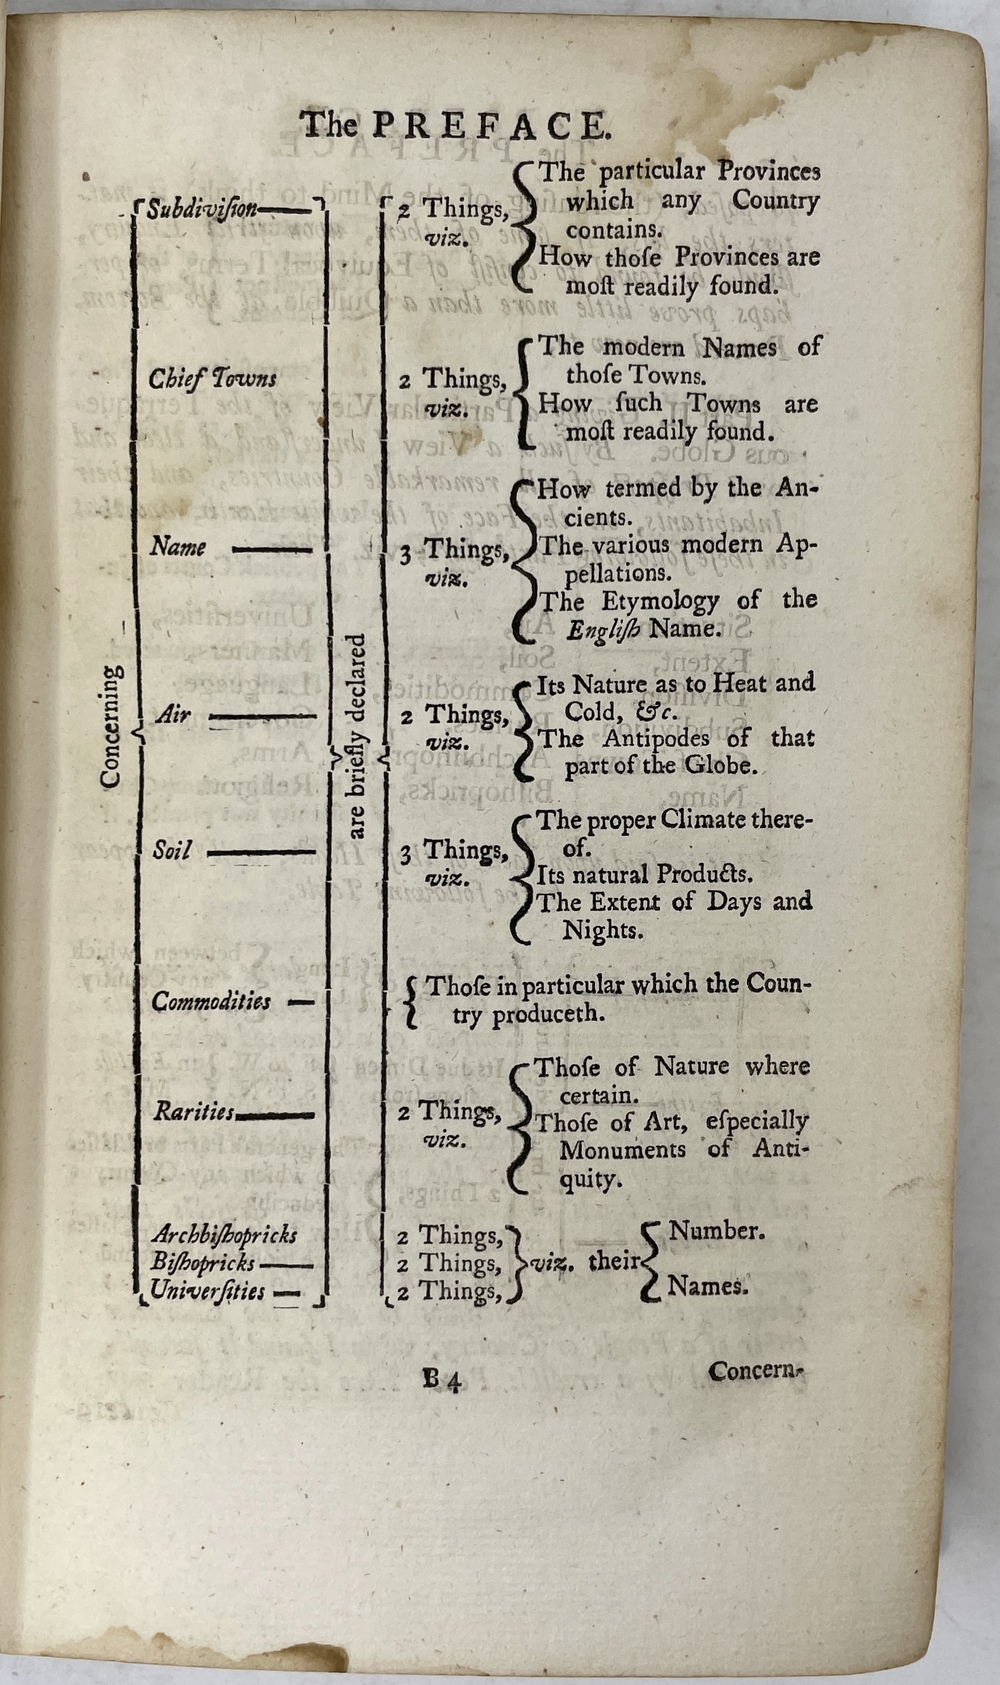 The PREFACE.
Concerning
are briefly declared
Subdiviſion
2 Things,
viz.
The particular Provinces
which any Country
contains.
How thoſe Provinces are
moſt readily found.
Chief Towns
2 Things,
viz.
The modern Names of
thoſe Towns.
How ſuch Towns are
moſt readily found.
Name
3 Things,
viz.
How termed by the An-
cients.
The various modern Ap-
pellations.
The Etymology of the
Engliſh Name.
Air
2 Things,
viz.
Its Nature as to Heat and
Cold, &c.
The Antipodes of that
part of the Globe.
Soil
3 Things,
viz.
The proper Climate there-
of.
Its natural Products.
The Extent of Days and
Nights.
Commodities
Thoſe in particular which the Coun-
try produceth.
Rarities
2 Things,
viz.
Thoſe of Nature where
certain.
Thoſe of Art, eſpecially
Monuments of Anti-
quity.
Archbiſhopricks
2 Things,
Biſhopricks
2 Things,
Univerſities
2 Things,
viz. their
Number.
Names.
B 4
Concern-